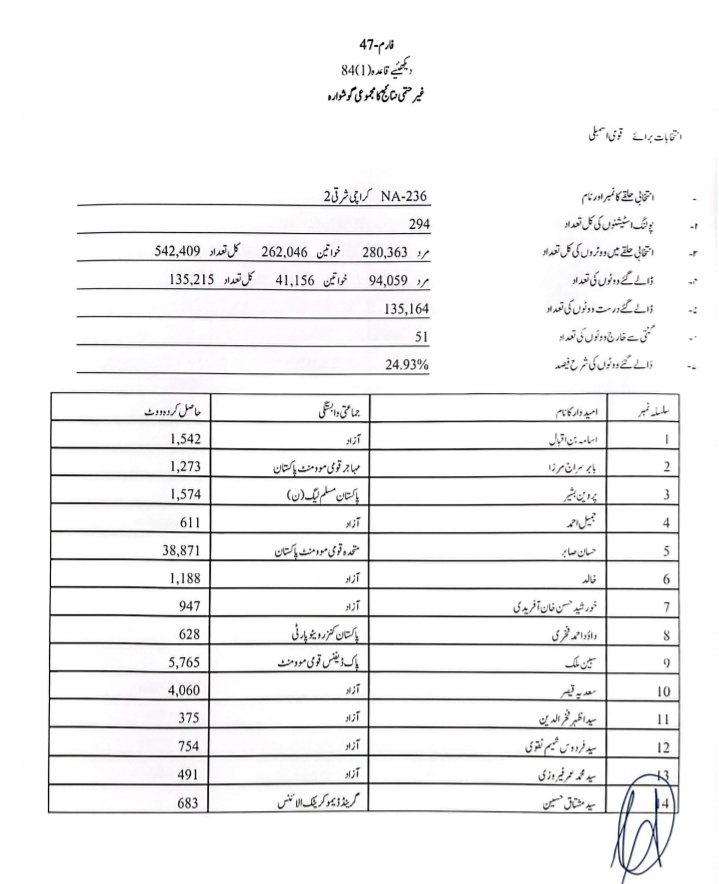 فارم-47
دیکھئیے قاعدہ (1)84
غیر حتمی نتائج کا مجموعی گوشوارہ
انتخابات برائے قومی اسمبلی
- انتخابی حلقے کا نمبر اور نام NA-236 کراچی شرقی 2
۲- پولنگ اسٹیشنوں کی کل تعداد 294
۳- انتخابی حلقے میں ووٹروں کی کل تعداد مرد 280,363 خواتین 262,046 کل تعداد 542,409
۴- ڈالے گئے ووٹوں کی تعداد مرد 94,059 خواتین 41,156 کل تعداد 135,215
۵- ڈالے گئے درست ووٹوں کی تعداد 135,164
۶- گنتی سے خارج ووٹوں کی تعداد 51
۷- ڈالے گئے ووٹوں کی شرح فیصد 24.93%
سلسلہ نمبر امیدوار کا نام جماعتی وابستگی حاصل کردہ ووٹ
1 اسامہ بن اقبال آزاد 1,542
2 بابر سراج مرزا مہاجر قومی موومنٹ پاکستان 1,273
3 پروین بشیر پاکستان مسلم لیگ (ن) 1,574
4 جمیل احمد آزاد 611
5 حسان صابر متحدہ قومی موومنٹ پاکستان 38,871
6 خالد آزاد 1,188
7 خورشید حسن خان آفریدی آزاد 947
8 داؤد احمد فخری پاکستان کنزرویٹو پارٹی 628
9 سبین ملک پاک ڈیفنس قومی موومنٹ 5,765
10 سعدیہ قیصر آزاد 4,060
11 سید اظہر فخر الدین آزاد 375
12 سید فردوس شمیم نقوی آزاد 754
13 سید محمد عمر فیروزی آزاد 491
14 سید مشتاق حسین گرینڈ ڈیموکریٹک الائنس 683